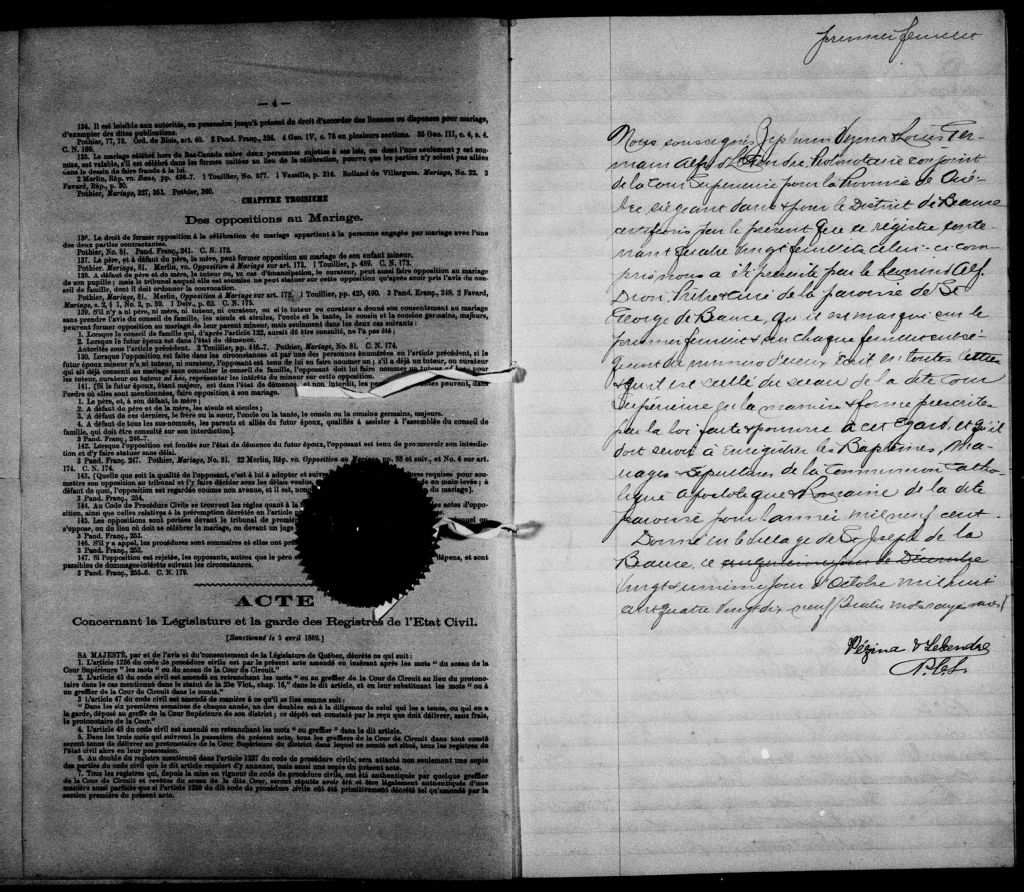 — 4 —
134. Il est loisible aux autorités, en possession jusqu'à présent du droit d'accorder des licences ou dispenses pour mariage,
d'exempter des dites publications.
Pothier, 77, 78. Ord. de Blois, art. 40. 2 Pand. Franç., 224. 4 Geo. IV, c. 78 en plusieurs sections. 35 Geo. III, c. 4, s. 4.
C. N. 169.
135. Le mariage célébré hors du Bas-Canada entre deux personnes sujettes à ses lois, ou dont l'une seulement y est sou-
mise, est valable, s'il est célébré dans les formes usitées au lieu de la célébration, pourvu que les parties n'y soient pas allées
dans le dessein de faire fraude à la loi.
2 Merlin, Rép. vo. Bans, pp. 436-7. 1 Touillier, No. 577. 1 Vazeille, p. 314. Rolland de Villargues. Mariage, No. 22. 3
Favard, Rép., p. 50.
Pothier, Mariage, 327, 363. Pothier, 390.
CHAPITRE TROISIEME
Des oppositions au Mariage.
136. Le droit de former opposition à la célébration du mariage appartient à la personne engagée par mariage avec l'une
des deux parties contractantes.
Pothier, No. 81. Pand. Franç., 241. C. N. 172.
137. Le père, et à défaut du père, la mère, peut former opposition au mariage de son enfant mineur.
Pothier, Mariage, 81. Merlin, vo. Opposition à Mariage sur art. 173. 1 Touillier, p. 489. C. N. 173.
138. A défaut de père et de mère, le tuteur ou, en cas d'émancipation, le curateur, peut aussi faire opposition au mariage
de son pupille; mais le tribunal auquel elle est soumise ne peut statuer sur cette opposition qu'après avoir pris l'avis du con-
seil de famille, dont il doit ordonner la convocation.
Pothier, Mariage, 81. Merlin, Opposition à Mariage sur art. 172. 1 Touillier, pp. 425, 490. 3 Pand. Franç., 248. 2 Favard,
Mariage, s. 2, § 1, No. 3, p. 59. 1 Delv., p. 62. C. N. 175.
139. S'il n'y a ni père, ni mère, ni tuteur, ni curateur, ou si le tuteur ou curateur a donné son consentement au mariage
sans prendre l'avis du conseil de famille, les aïeuls et aïeules, l'oncle et la tante, le cousin et la cousine germains, majeurs,
peuvent former opposition au mariage de leur parent mineur, mais seulement dans les deux cas suivants:
1. Lorsque le conseil de famille qui, d'après l'article 122, aurait dû être consulté, ne l'a pas été;
2. Lorsque le futur époux est dans l'état de démence.
Autorités sous l'article précédent. 2 Touillier, pp. 446-7. Pothier, Mariage, No. 81. C. N. 174.
139. Lorsque l'opposition est faite dans les circonstances et par une des personnes énumérées en l'article précédent, si le
futur époux mineur n'a ni tuteur, ni curateur, l'opposant est tenu de lui en faire nommer un; s'il a déjà un tuteur, ou curateur
qui ait déjà consenti au mariage sans consulter le conseil de famille, l'opposant doit lui faire nommer un tuteur ad hoc, pour
les tuteur, curateur ou tuteur ad hoc, représenter les intérêts du mineur sur cette opposition.
141. [Si le futur époux, étant majeur, est dans l'état de démence, et non interdit, les peuvent, dans
l'ordre où elles sont mentionnées, faire opposition à son mariage.
1. Le père, et, à son défaut, la mère;
2. A défaut du père et de la mère, les aïeuls et aïeules;
3. A défaut de ces derniers, le frère ou la sœur, l'oncle ou la tante, le cousin ou la cousine germains, majeurs.
4. A défaut de tous les sus-nommés, les parents et alliés du futur époux, qualifiés à assister à l'assemblée du conseil de
famille, qui doit être consulté sur son interdiction].
3 Pand. Franç., 246-7.
142. Lorsque l'opposition est fondée sur l'état de démence du futur époux, l'opposant est tenu de promouvoir son interdic-
tion et d'y faire statuer sans délai.
3 Pand. Franç. 247. Pothier, Mariage, No. 81. 22 Merlin, Rép. vo. Opposition au Mariage, pp. 88 et suiv., et No. 4 sur art.
174. C. N. 174.
143. [Quelle que soit la qualité de l'opposant, c'est à lui à adopter et suivre requises pour sou-
mettre son opposition au tribunal et l'y faire décider sous les délais voulus, en main-levée; à
défaut de quoi, l'opposition est regardée comme non avenue, et il est, non du mariage].
3 Pand. Franç., 254.
144. Au Code de Procédure Civile se trouvent les règles quant à la actes d'oppo-
sition, ainsi que celles relatives à la péremption décrétée en l'article
145. Les oppositions sont portées devant le tribunal de premiè on
s'oppose, ou du lieu où doit se célébrer le mariage, ou devant un juge
3 Pand. Franç., 251.
146. S'il y a appel, les procédures sont sommaires et elles ont pré
3 Pand. Franç., 252.
147. Si l'opposition est rejetée, les opposants, autres que le père dépens, et sont
passibles de dommages-intérêts suivant les circonstances.
3 Pand. Franç., 255-6. C. N. 179.
ACTE
Concernant la Législature et la garde des Registres de l'Etat Civil.
[Sanctionné le 5 avril 1869.]
SA MAJESTÉ, par et de l'avis et du consentement de la Législature de Québec, décrète ce qui suit:
1. L'article 1236 du code de procédure civile est par le présent acte amendé en insérant après les mots " du sceau de la
Cour Supérieure " les mots " ou du sceau de la Cour de Circuit."
2. L'article 45 du code civil est amendé en retranchant les mots " ou au greffier de la Cour de Circuit au lieu du protono-
taire dans le cas mentionné dans le statut de la 25e Vict., chap. 16," dans le dit article, et en leur substituant les mots " ou à
un greffier de la Cour de Circuit dans le comté."
3 L'article 47 du code civil est amendé de manière à ce qu'il se lise comme suit:
" Dans les six premières semaines de chaque année, un des doubles est à la diligence de celui qui les a tenus, ou qui en a
la garde, déposé au greffe de la Cour Supérieure de son district; ce dépôt est constaté par le reçu que doit délivrer, sans frais,
le protonotaire de la Cour."
4. L'article 48 du code civil est amendé en retranchant les mots " ou greffier " dans le dit article.
5. Dans les trois mois qui suivront la passation du présent acte, tous les greffiers de la Cour de Circuit dans tout comté
seront tenus de délivrer au protonotaire de la Cour Supérieure du district dans lequel ce comté est situé, tous les registres de
l'état civil alors en leur possession.
6. Au double du registre mentionné dans l'article 1237 du code de procédure civile, sera attaché non seulement une copie
des parties du code civil que le dit article requiert d'y annexer, mais aussi une copie du présent acte.
7. Tous les registres qui, depuis la mise en vigueur du code de procédure civile, ont été authentiqués par quelque greffier
de la Cour de Circuit et revêtus du sceau de la dite Cour, seront réputés avoir été et être légalement authentiqués d'une
manière aussi parfaite que si l'article 1236 du dit code de procédure civile eût été primitivement décrété tel qu'amendé par la
section première du présent acte.
premier feuillet
Nous soussignés Zéphirin Vézina & Louis Ger-
main Alfred LeGendre Protonotaire conjoint
de la Cour Supérieure pour la Province de Qué-
bec siégeant dans & pour le District de Beauce
certifions par le présent que ce régistre conte-
nant quatre vingt feuillets celui-ci com-
pris nous a été présenté par le Révérend Alf
Dion, Prêtre & curé de la paroisse de St
George de Beauce, qu'il est marqué sur le
premier feuillet & sur chaque feuillet subsé-
quent du numéro d'iceux écrit en toutes lettres
& qu'il est scellé du sceau de la dite Cour
Supérieure en la manière & forme prescrite
par la loi faite & pourvue à cet égard, et qu'il
doit servir à enrégistrer les Baptêmes, Ma-
riages & Sépultures de la Communion Catho-
lique Apostolique & Romaine de la dite
paroisse pour l'année mil neuf cent.
Donné en le village de St Joseph de la
Beauce, ce cinquième jour de Décembre
vingt & unième jour d'Octobre mil huit
cent quatre vingt dix neuf (quatre mots rayés nuls)
Vézina & LeGendre
P.C.S.